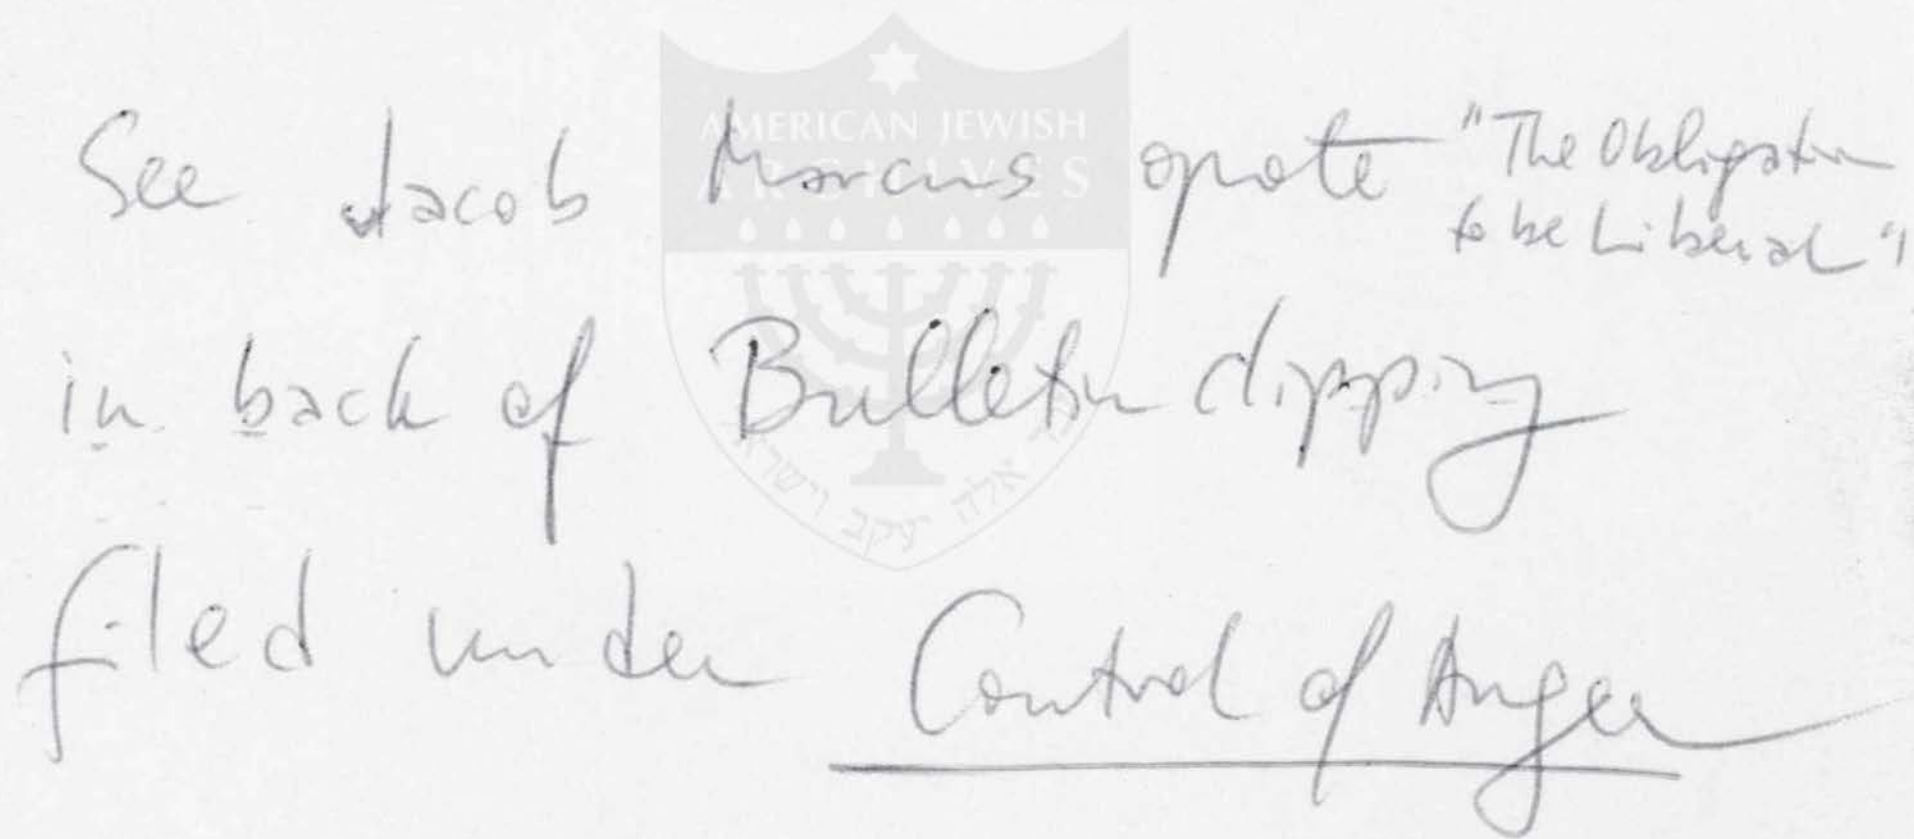 AMERICAN JEWISH
ARCHIVES
See Jacob Marcus quote "The Obligation
to be Liberal"
in back of Bulletin clipping
filed under Control of Anger